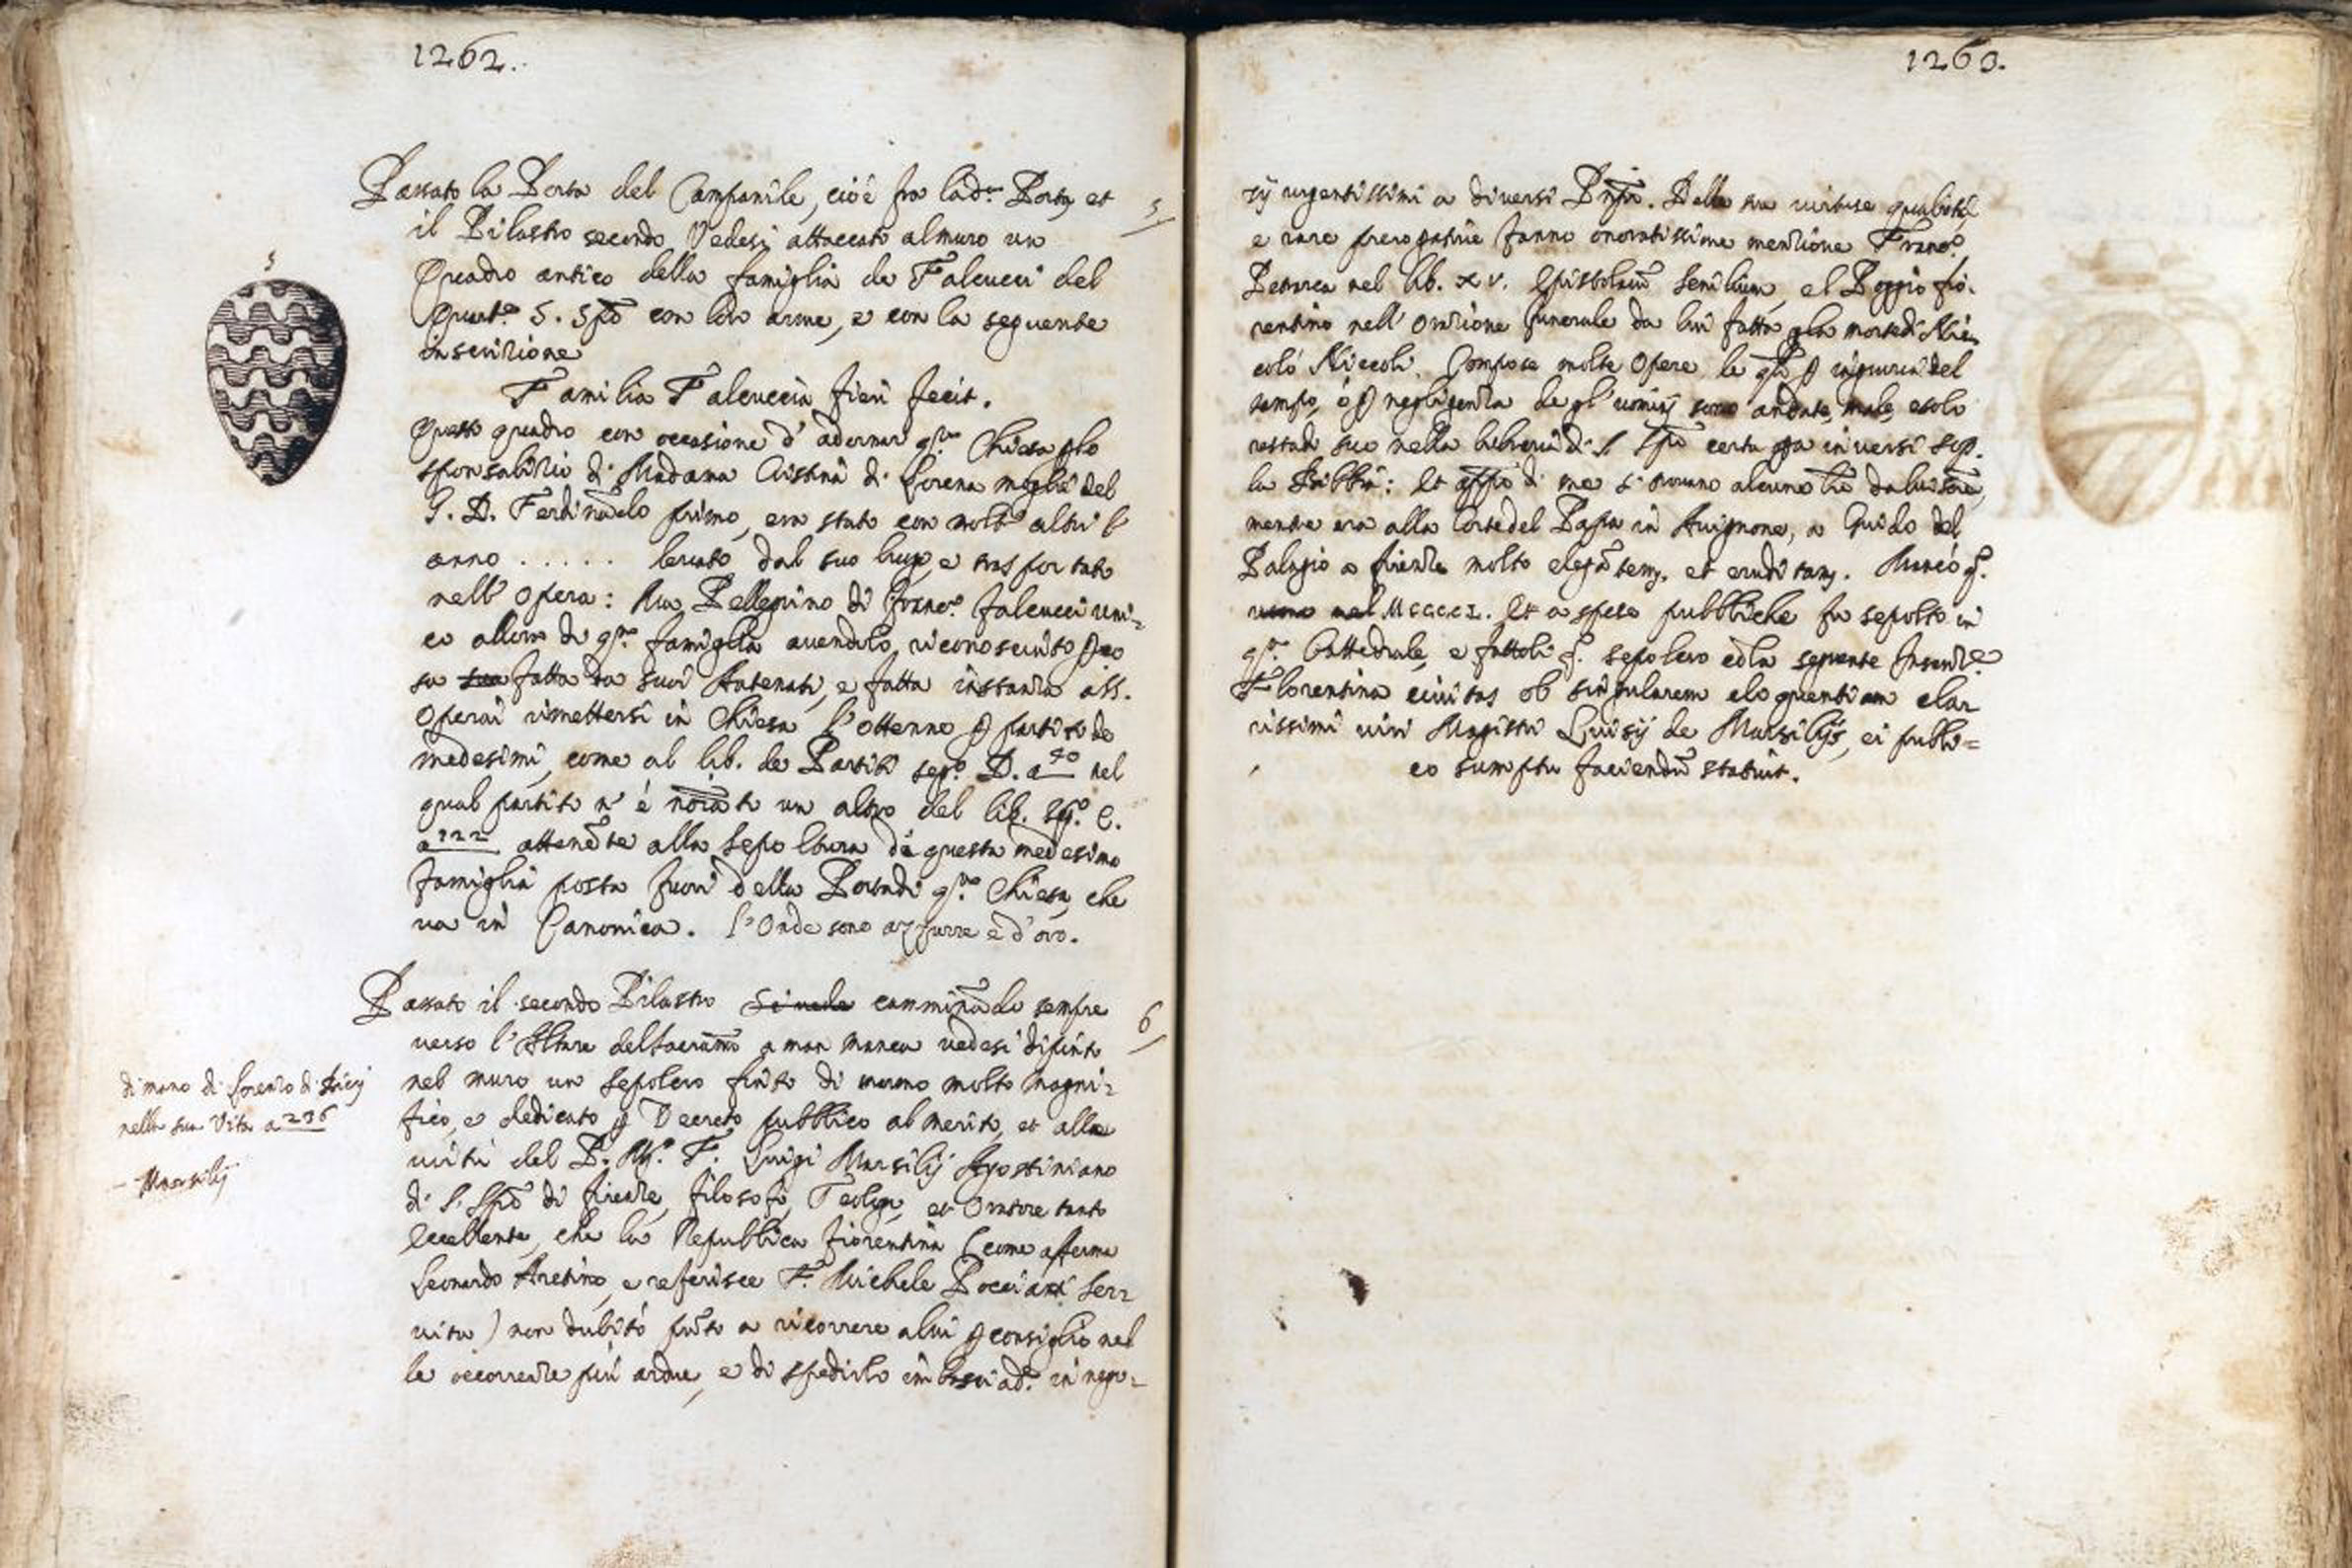 1262.
Passato la Porta del Campanile, cioè fra la d.ª Porta, et
5
il Pilastro secondo Vedesi attaccato al muro un
Quadro antico della famiglia de Falcucci del
Quart.º S. Spõ con loro arme, e con la seguente
inscrizione
Familia Falcuccia fieri fecit.
Questo quadro con occasione d' adornar q.ta Chiesa p lo
sponsalizio di Madama Cristina di Lorena moglie del
G. D. Ferdinãdo primo, era stato con molti altri l'
anno . . . . . levato dal suo luogo, e trasfortato
nell' Opera: Ma Pellegrino di Franc.º Falcucci uni=
co allora di q.ta famiglia avendolo riconosciuto p co
sa sua fatta da suoi Antenati, e fatta instanza a SS.
Operai rimettersi in Chiesa l'ottenne p partito de
medesimi, come al lib. de Partiti seg.º D. a 40 nel
qual partito n' è un altro del lib. seg.º C.
a 122 attenẽte alla sepoltura di questa medesima
famiglia posta fuori della Porta di q.ta Chiesa, che
va in Canonica. l'Onde sono azzurre e d'oro.
Passato il secondo Pilastro Si vede camminãdo sempre
6
verso l'Altare del Sacram̃to a man manca vedesi dipinto
nel muro un Sepolcro finto di marmo molto magni=
fico, e dedicato p Decreto pubblico al merito, et alla
virtù del P. M.º F. Luigi Marsilij Agostiniano
di S. Spõ di Firenze, filosofo, Teologo, et Oratore tanto
eccellente, che la Repubblica fiorentina (come afferma
Leonardo Aretino, e referisce F. Michele Poccianti Ser=
vita) non dubitò pũto a ricorrere a lui p consiglio nel
le occorrenze più ardue, e di spedirlo imbasciad.e in nego=
5
di mano di Lorenzo di Bicci
nella sua Vita a 236
Marsilij
1263.
zij urgentissimi a diversi Prñpi. Della sua virtù, e qualità,
e rare prerogative fanno onoratissima menzione Franc.º
Petrarca nel lib. XV. Epistolarũ Senilium, el Poggio fio=
rentino nell' Orazione funerale da lui fatta p la morte di Nic=
colò Niccoli. Compose molte Opere le q̃li p ingiuria del
tempo, ò p negligenza degl' uomini sono andate male, e solo
resta di suo nella libreria di S. Spõ certa in versi sop.
la Bibbia: Et app.º di me si trovano alcune lr̃e da lui scr.e,
mentre era alla Corte del Papa in Avignone, a Guido del
Palagio a Firenze molto elegãtem., et erudit.am. Mancò q.
uomo nel MCCCCI. Et a spese pubbliche fu sepolto in
q.ta Cattedrale, e fattoli q. sepolcro cõ la seguente Inscriz.e
Florentina civitas ob singularem eloquentiam clar
rissimi viri Magistri Luisij de Marsilijs, ei publi=
co sumptu faciendũ statuit.